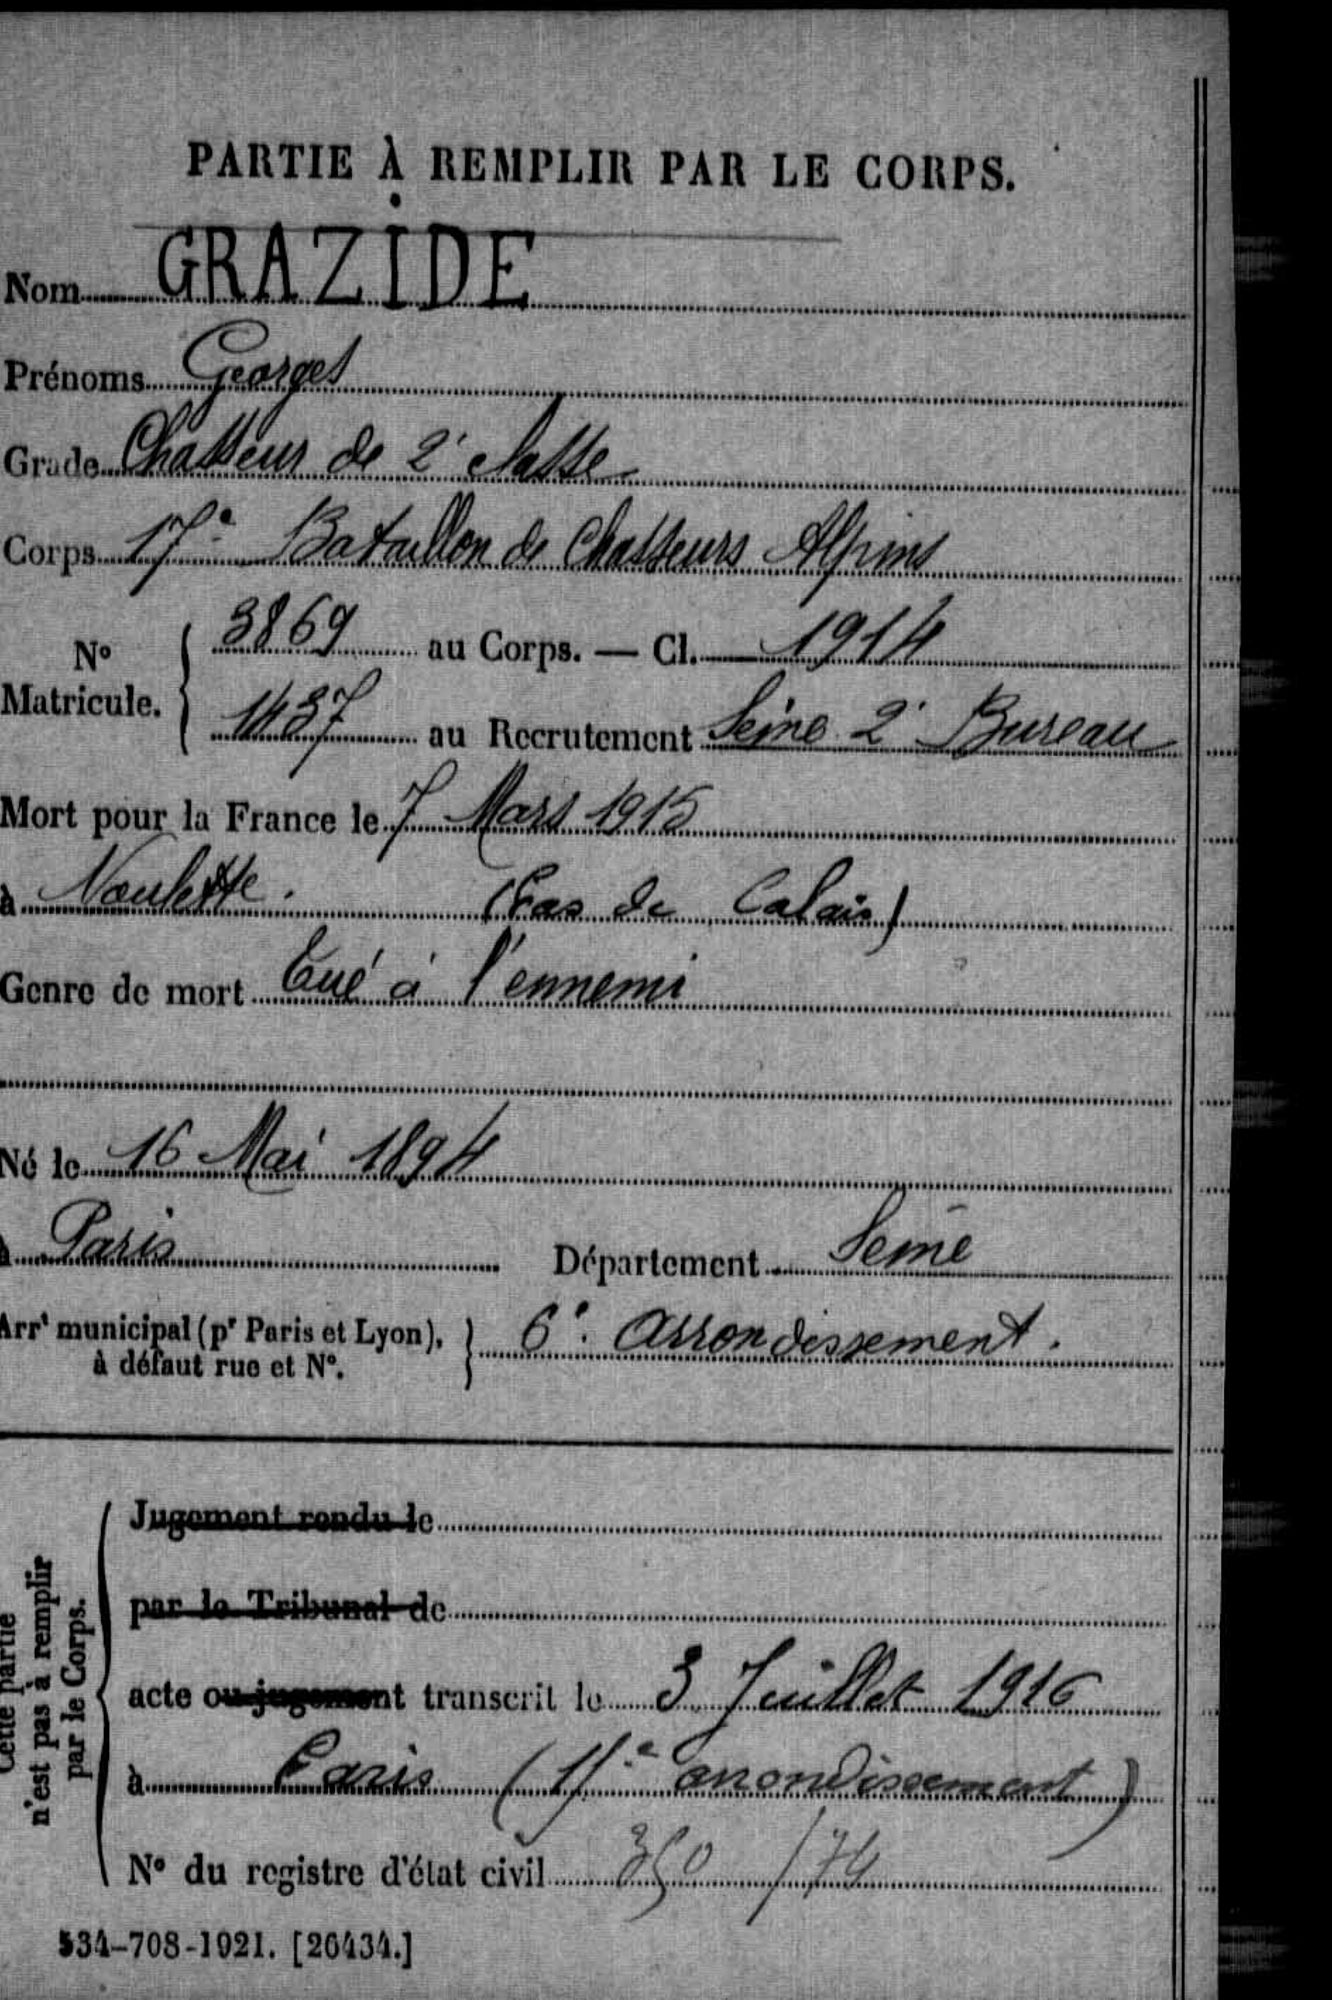 PARTIE À REMPLIR PAR LE CORPS.
Nom GRAZIDE
Prénoms Georges
Grade Chasseur de 2e classe
Corps 17e Bataillon de Chasseurs Alpins
No Matricule. 3869 au Corps. — Cl. 1914
1437 au Recrutement Seine 2e Bureau
Mort pour la France le 7 Mars 1915
à Noulette. (Pas de Calais)
Genre de mort Tué à l'ennemi
Né le 16 Mai 1894
à Paris Département Seine
Arrt municipal (pr Paris et Lyon), à défaut rue et No. 6e. Arrondissement.
Cette partie n'est pas à remplir par le Corps.
Jugement rendu le
par le Tribunal de
acte ou jugement transcrit le 3 Juillet 1916
à Paris (11e arrondissement)
No du registre d'état civil /74
534-708-1921. [26434.]